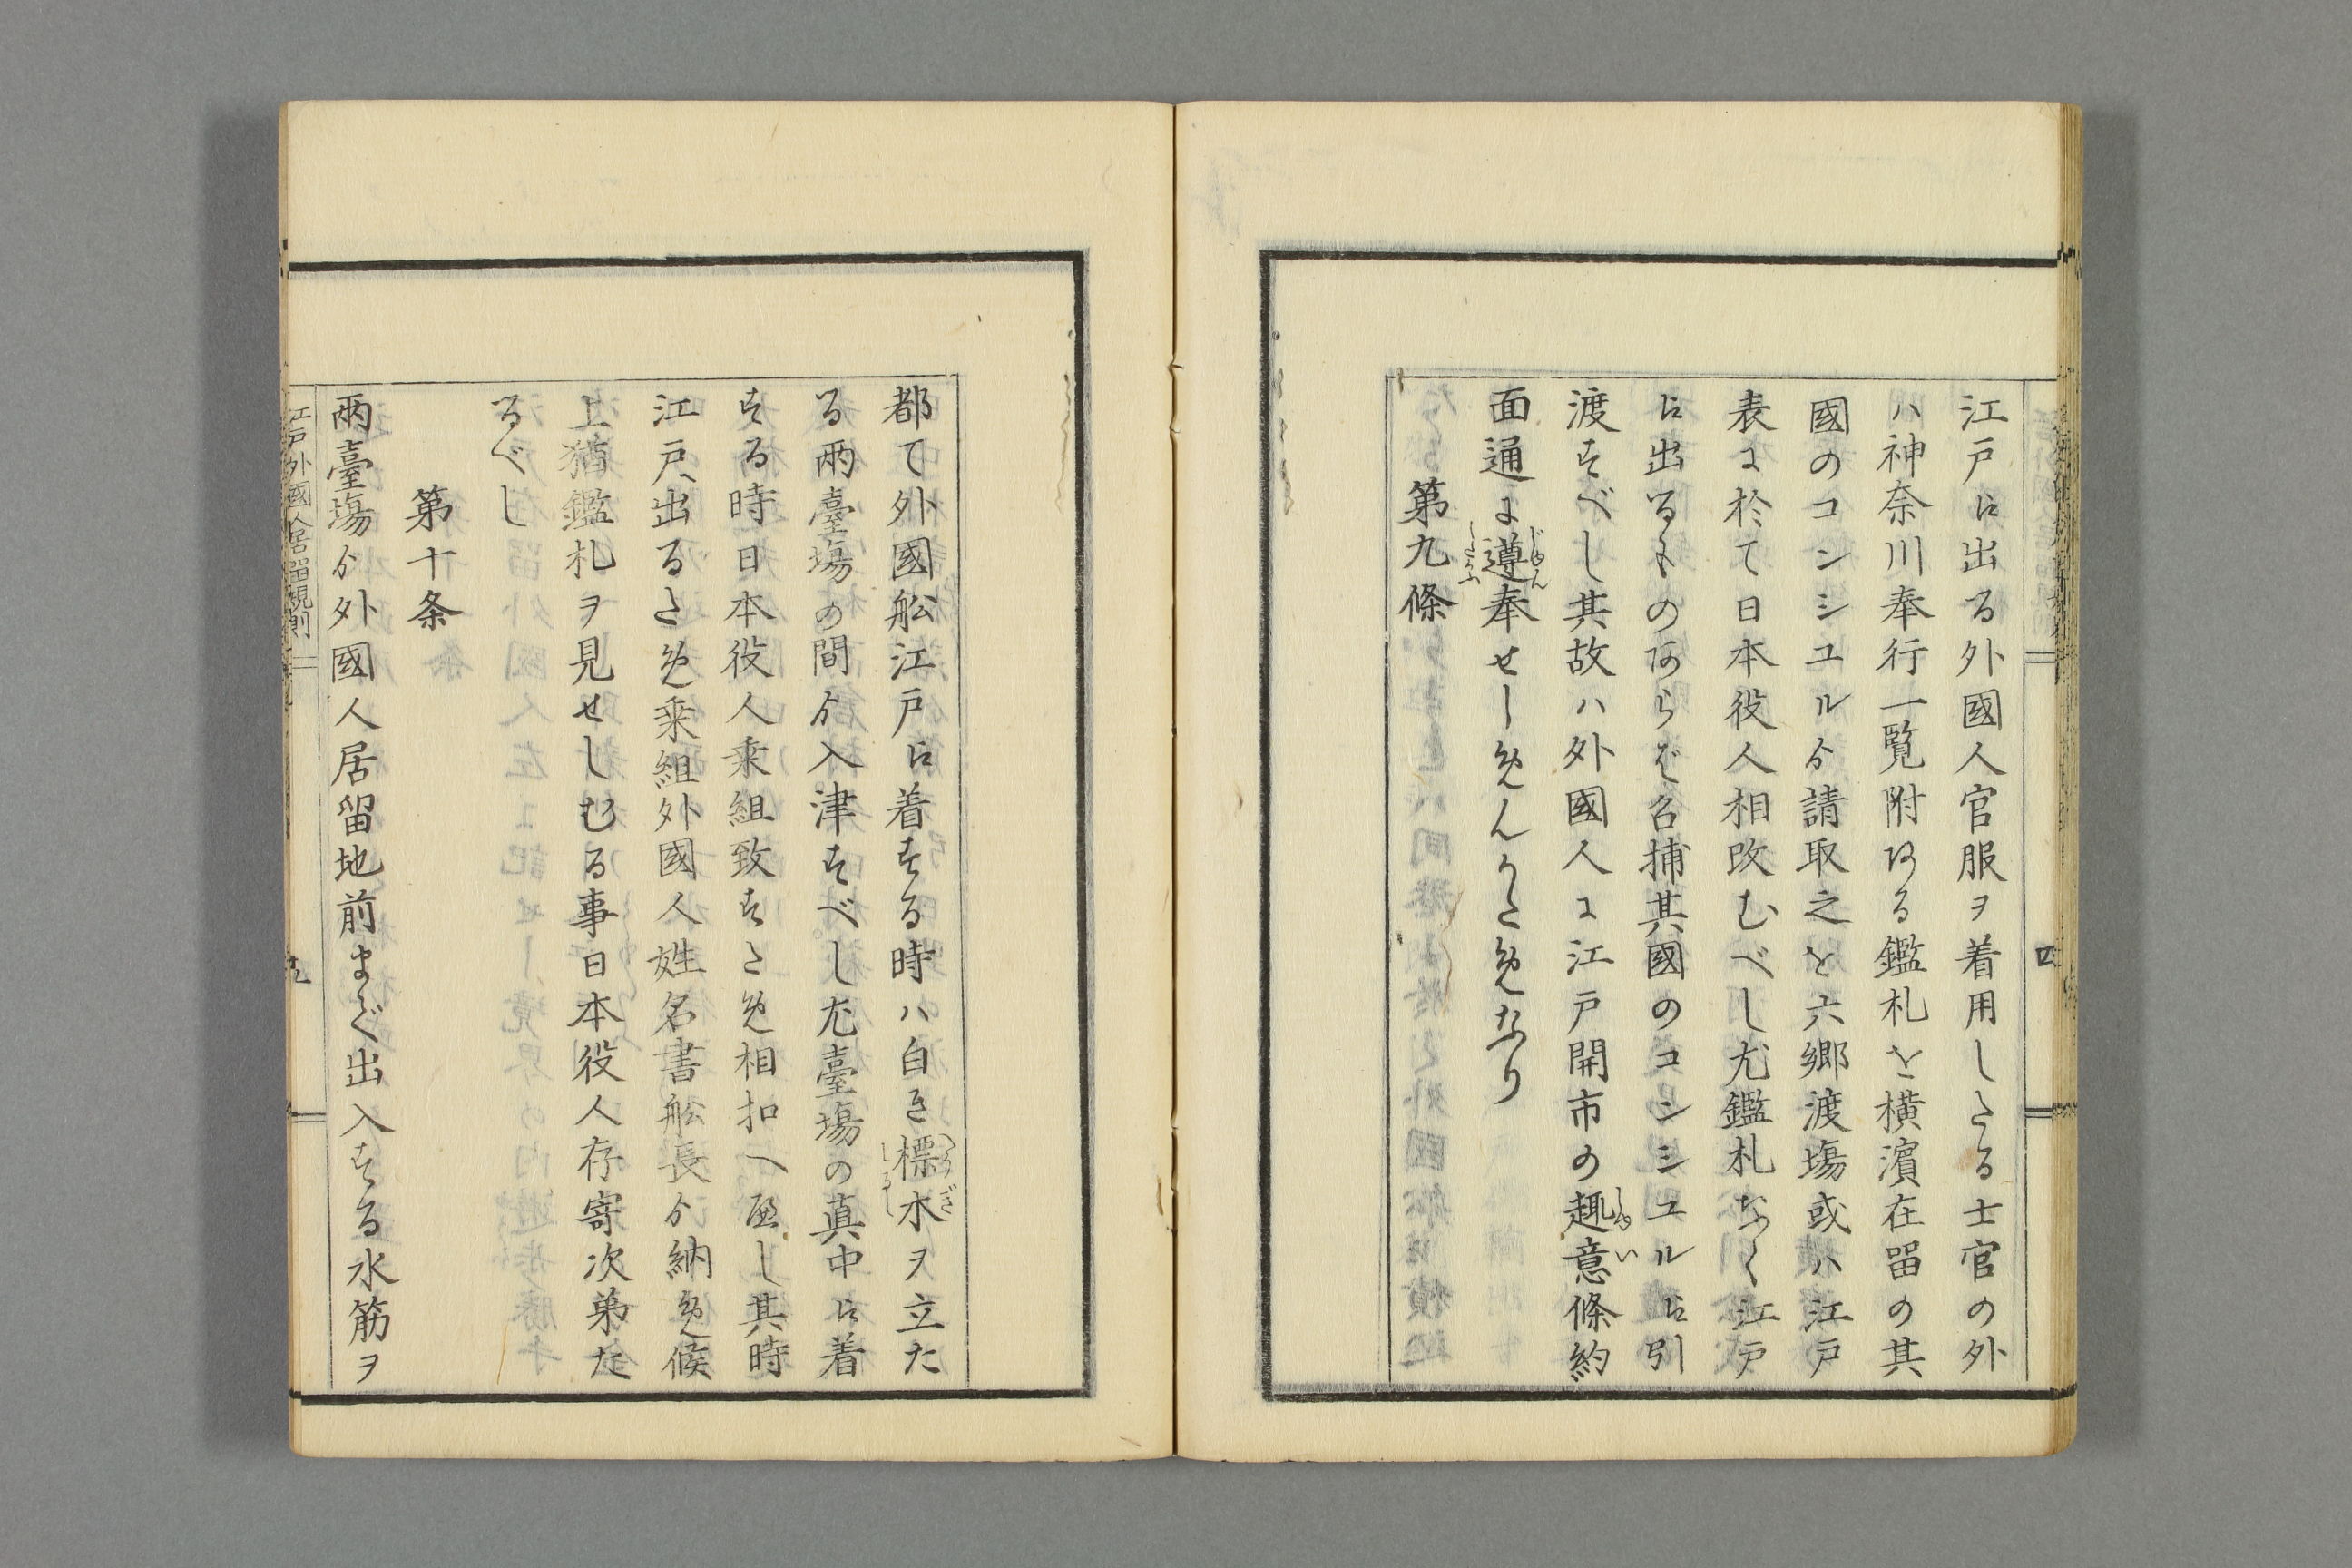 江戸に出る外國人官服ヲ着用したる士官の外
ハ神奈川奉行一覧附ある鑑札を横濱在留の其
國のコンシユルゟ請取之を六郷渡場或ハ江戸
表に於て日本役人相改むべし尤鑑札なく江戸
に出るものあらば召捕其國のコンシユルに引
渡すべし其故ハ外國人に江戸開市の趣意條約
面通に遵奉せしめんかためなり
第九條
都て外國舩江戸に着する時ハ白き標木ヲ立た
る両臺場の間ゟ入津すべし尤臺場の真中に着
する時日本役人乗組致すため相扣へ居し其時
江戸へ出るため乗組外國人姓名書舩長ゟ納め候
上猶鑑札ヲ見せしむる事日本役人存寄次第た
るべし
第十条
両臺場ゟ外國人居留地前まで出入する水筋ヲ
江戸外國人居留規則